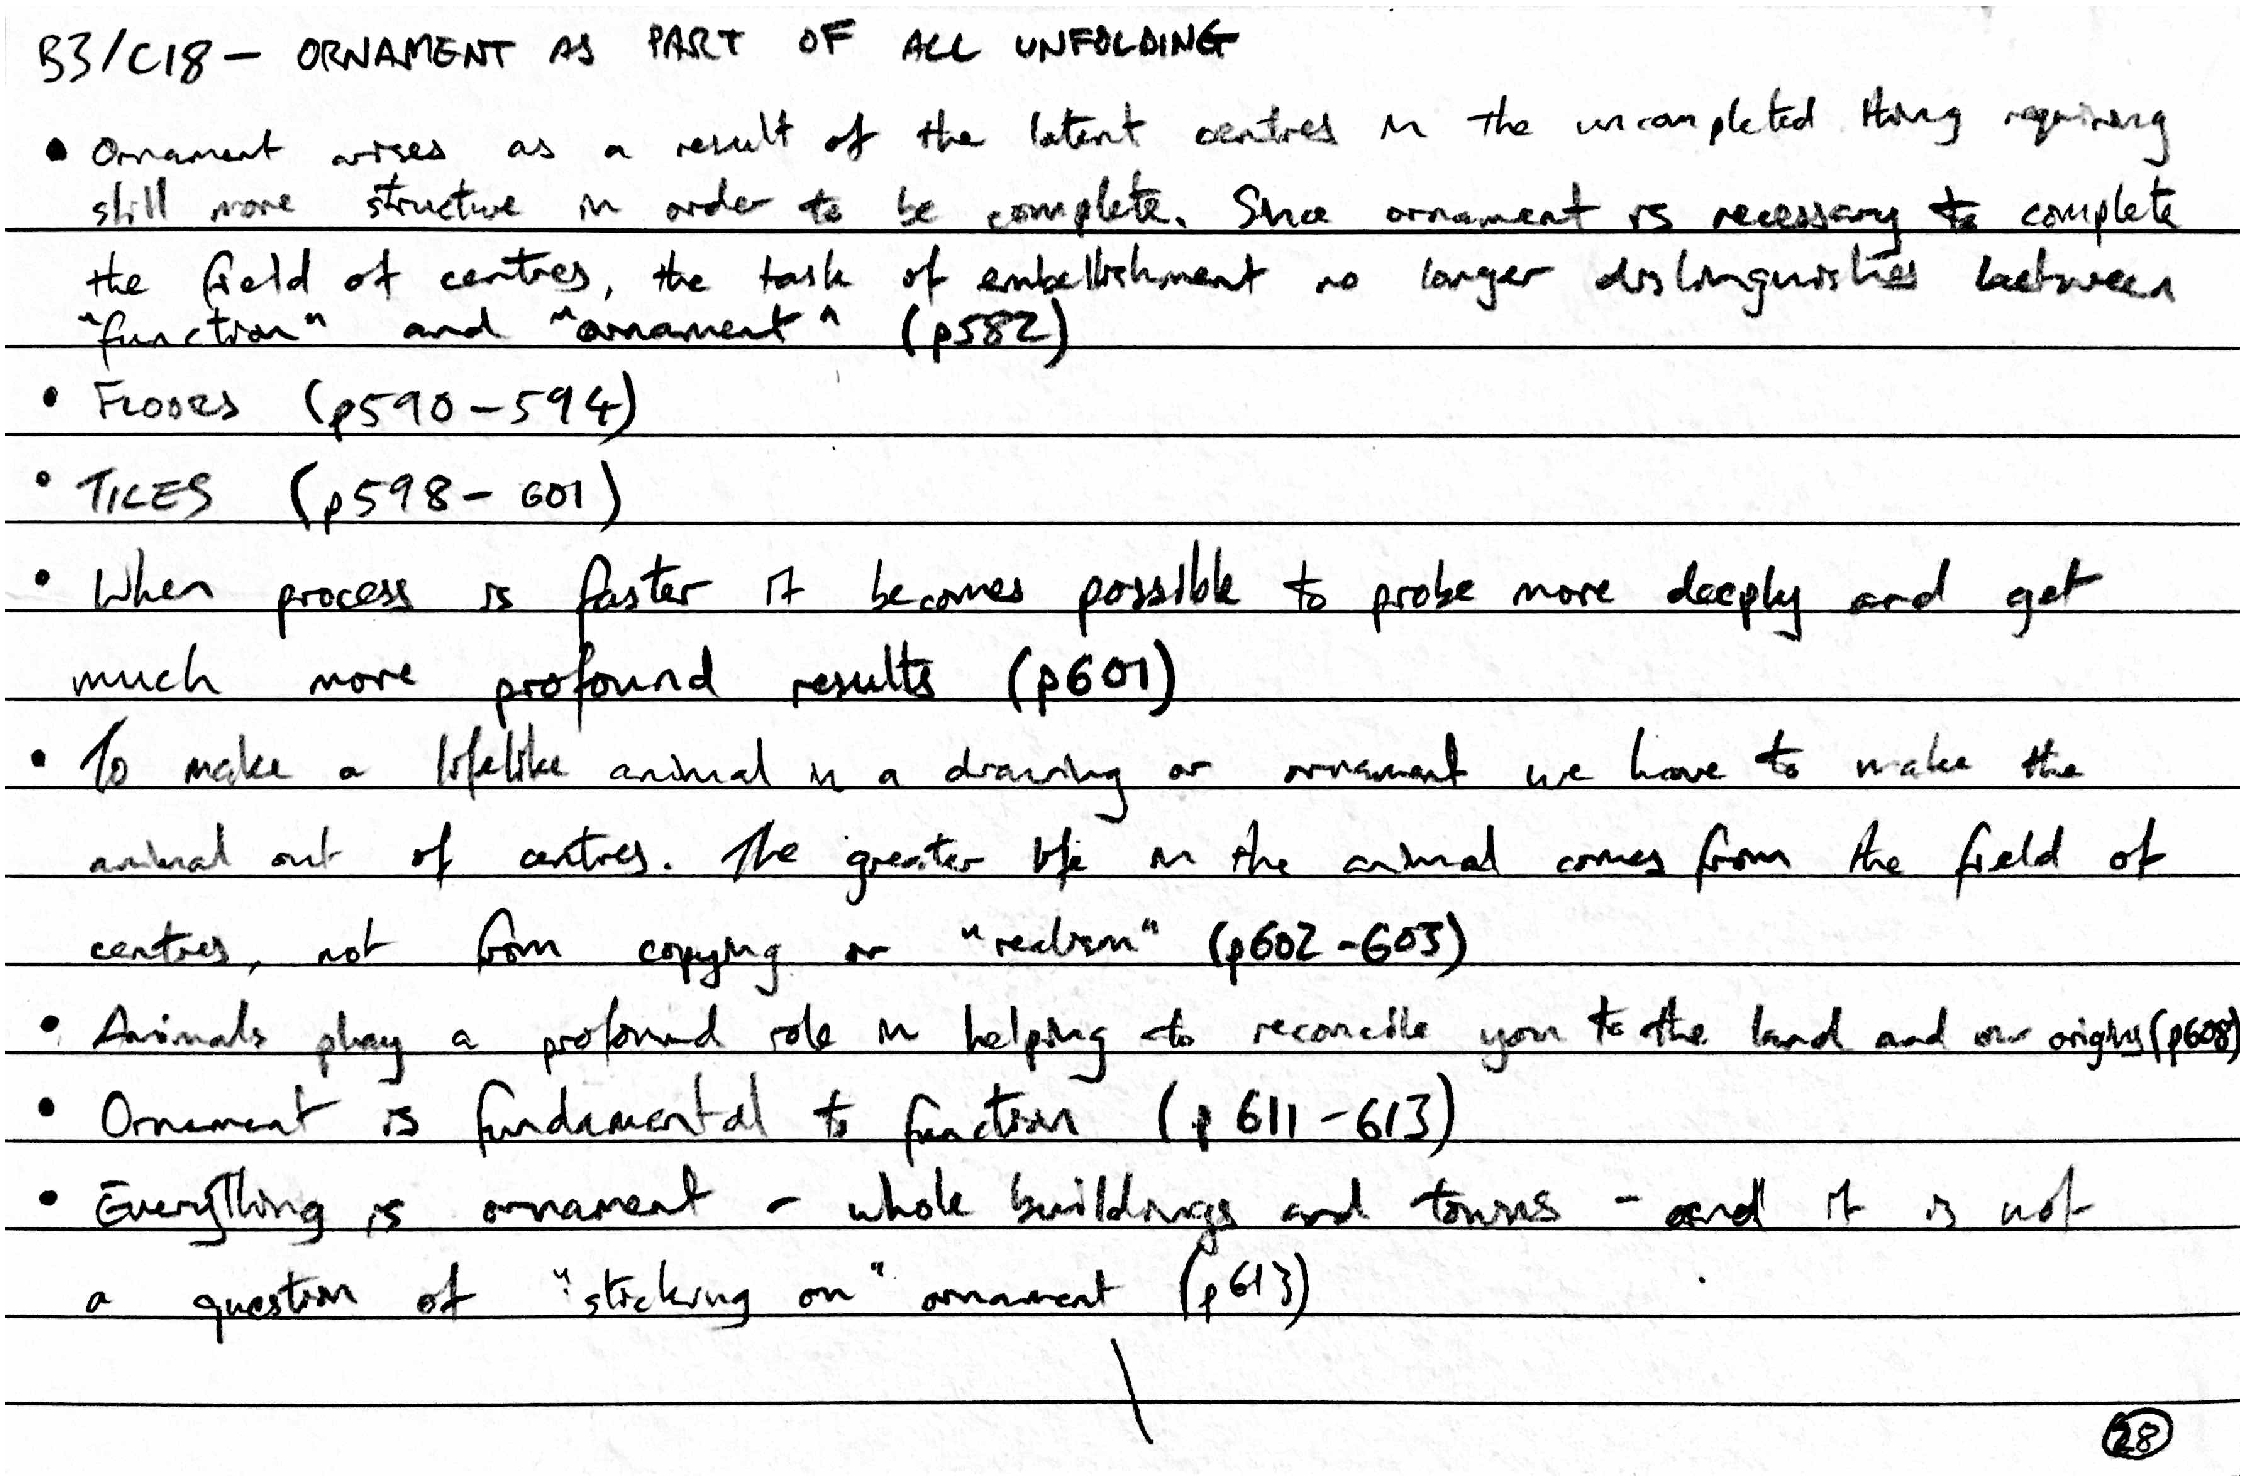 B3/C18 – ORNAMENT AS PART OF ALL UNFOLDING
• Ornament arises as a result of the latent centres in the uncompleted thing requiring
still more structure in order to be complete. Since ornament is necessary to complete
the field of centres, the task of embellishment no longer distinguishes between
"function" and "ornament" (p582)
• FLOORS (p590–594)
• TILES (p598–601)
• When process is faster it becomes possible to probe more deeply and get
much more profound results (p601)
• To make a lifelike animal in a drawing or ornament we have to make the
animal out of centres. The greater life in the animal comes from the field of
centres, not from copying or "realism" (p602–603)
• Animals play a profound role in helping to reconcile you to the land and our origins (p608)
• Ornament is fundamental to function (p611–613)
• Everything is ornament – whole buildings and towns – and it is not
a question of "sticking on" ornament (p613)
28